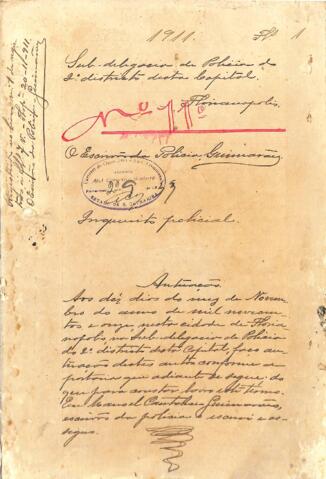 1911. Fl. 1
Sub-delegacia de Policia do
2º districto desta Capital.
Florianopolis,
Nº 110
O Escrivão da Policia, Guimarães
Inquerito policial.
Autuação
Aos déz dias do mez de Novem-
bro do anno de mil novecen-
tos e onze, nesta cidade de Floria-
nopolis na Sub-delegacia de Policia
do 2º districto desta Capital, faço au-
tuação destes autos conforme a
portaria que adiante se segue, do
que para constar lavro este termo.
Eu Manoel Guimarães,
escrivão da policia o escrevi e as-
signo.